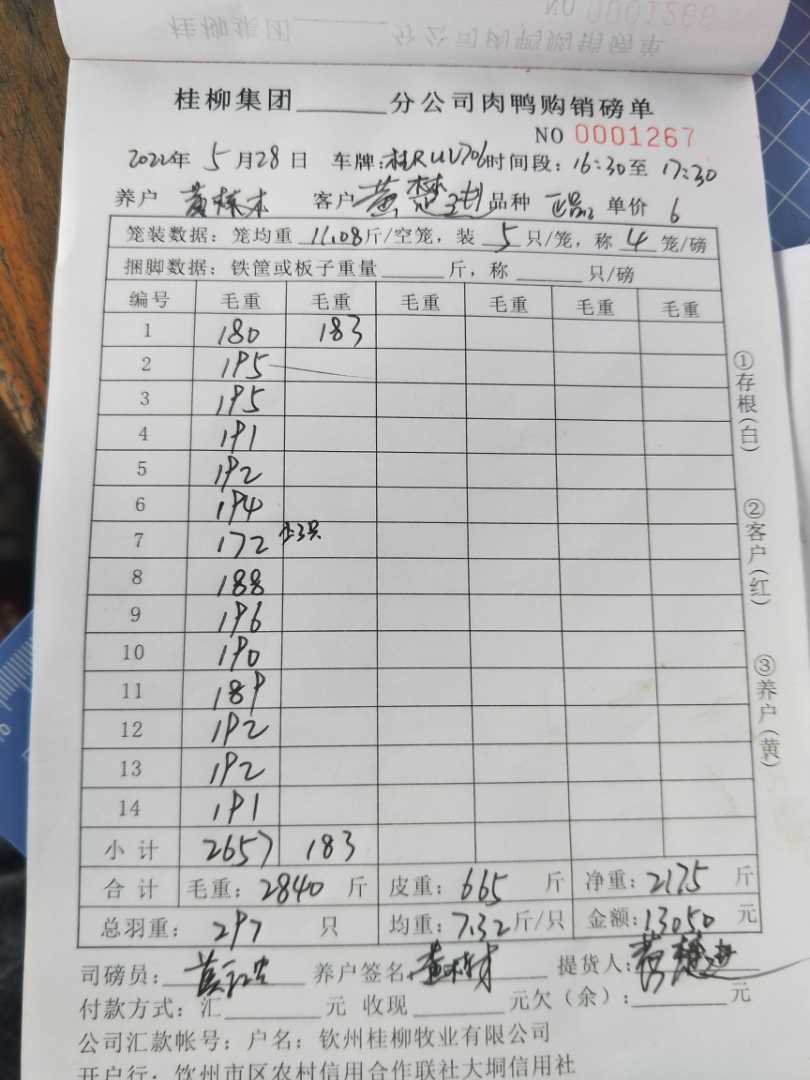 桂柳集团______分公司肉鸭购销磅单
NO 0001267
2022年 5月28日 车牌:桂RUV706时间段:16:30至17:30
养户 客户 黄楚 品种 正品 单价 6
笼装数据:笼均重 11.08斤/空笼,装 5 只/笼,称 4 笼/磅
捆脚数据:铁筐或板子重量______斤,称______只/磅
编号 毛重 毛重 毛重 毛重 毛重 毛重
1 180 183
2 195
3 195
4 191
5 192
6 194
7 172 少3只
8 188
9 196
10 190
11 189
12 192
13 192
14 191
小计 2657 183
合计 毛重:2840 斤 皮重:665 斤 净重:2175 斤
总羽重: 297 只 均重:7.32斤/只 金额:13050 元
司磅员: 养户签名: 提货人:
付款方式:汇______元 收现______元欠(余):______元
公司汇款帐号:户名:钦州桂柳牧业有限公司
开户行:钦州市区农村信用合作联社大垌信用社
①存根(白)
②客户(红)
③养户(黄)